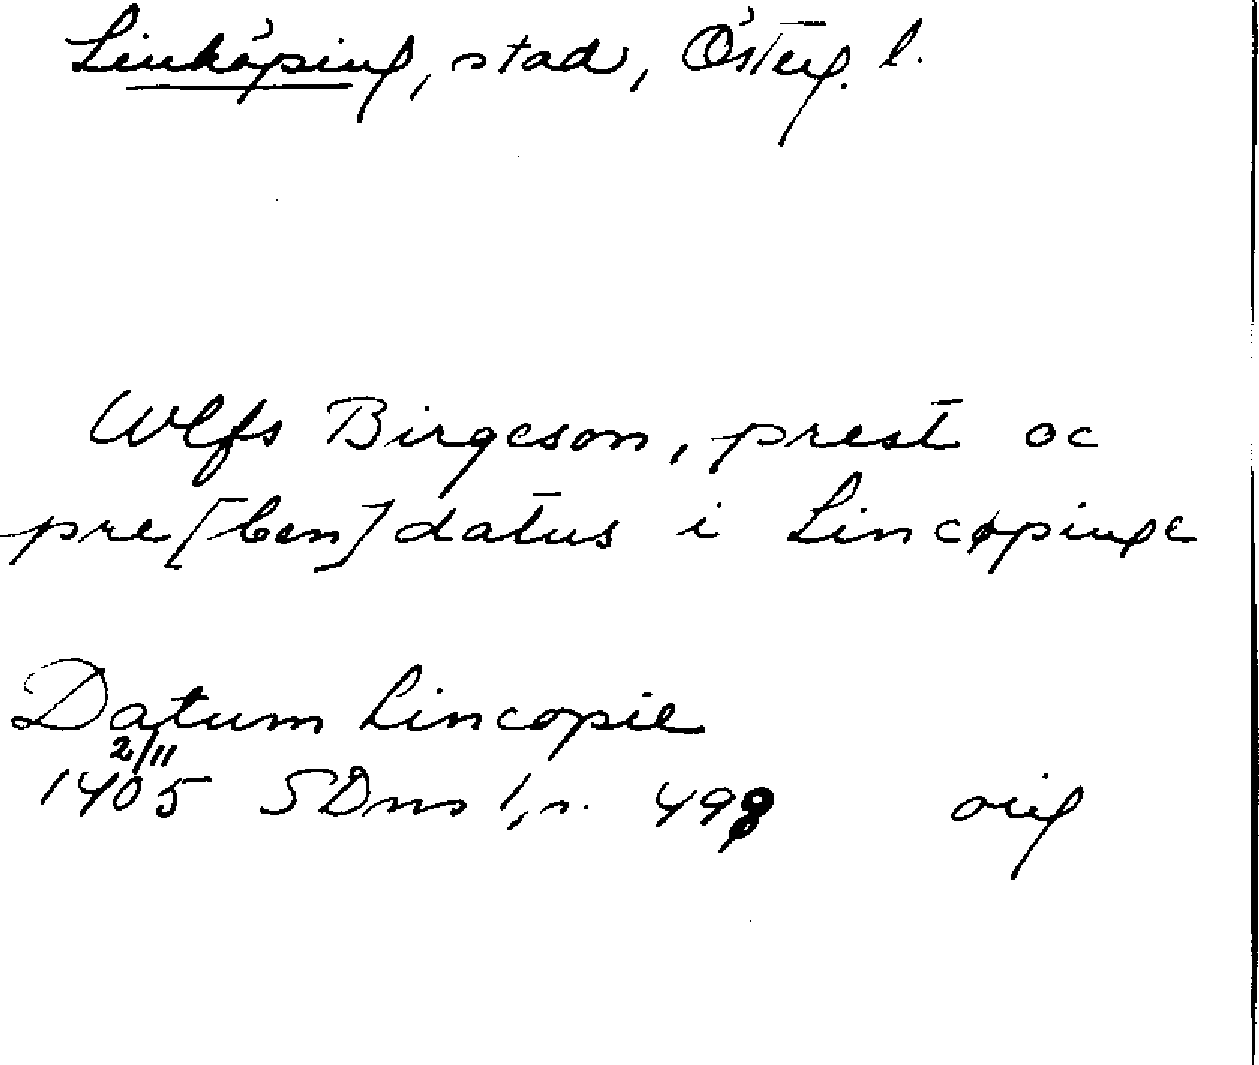 Linköping, stad, Österg. l.
Wlfs Birgeson, prest oc
pre[ben]datus i Lincøpinge
Datum Lincopie
2/11
1405 SDns 1, n. 498 orig